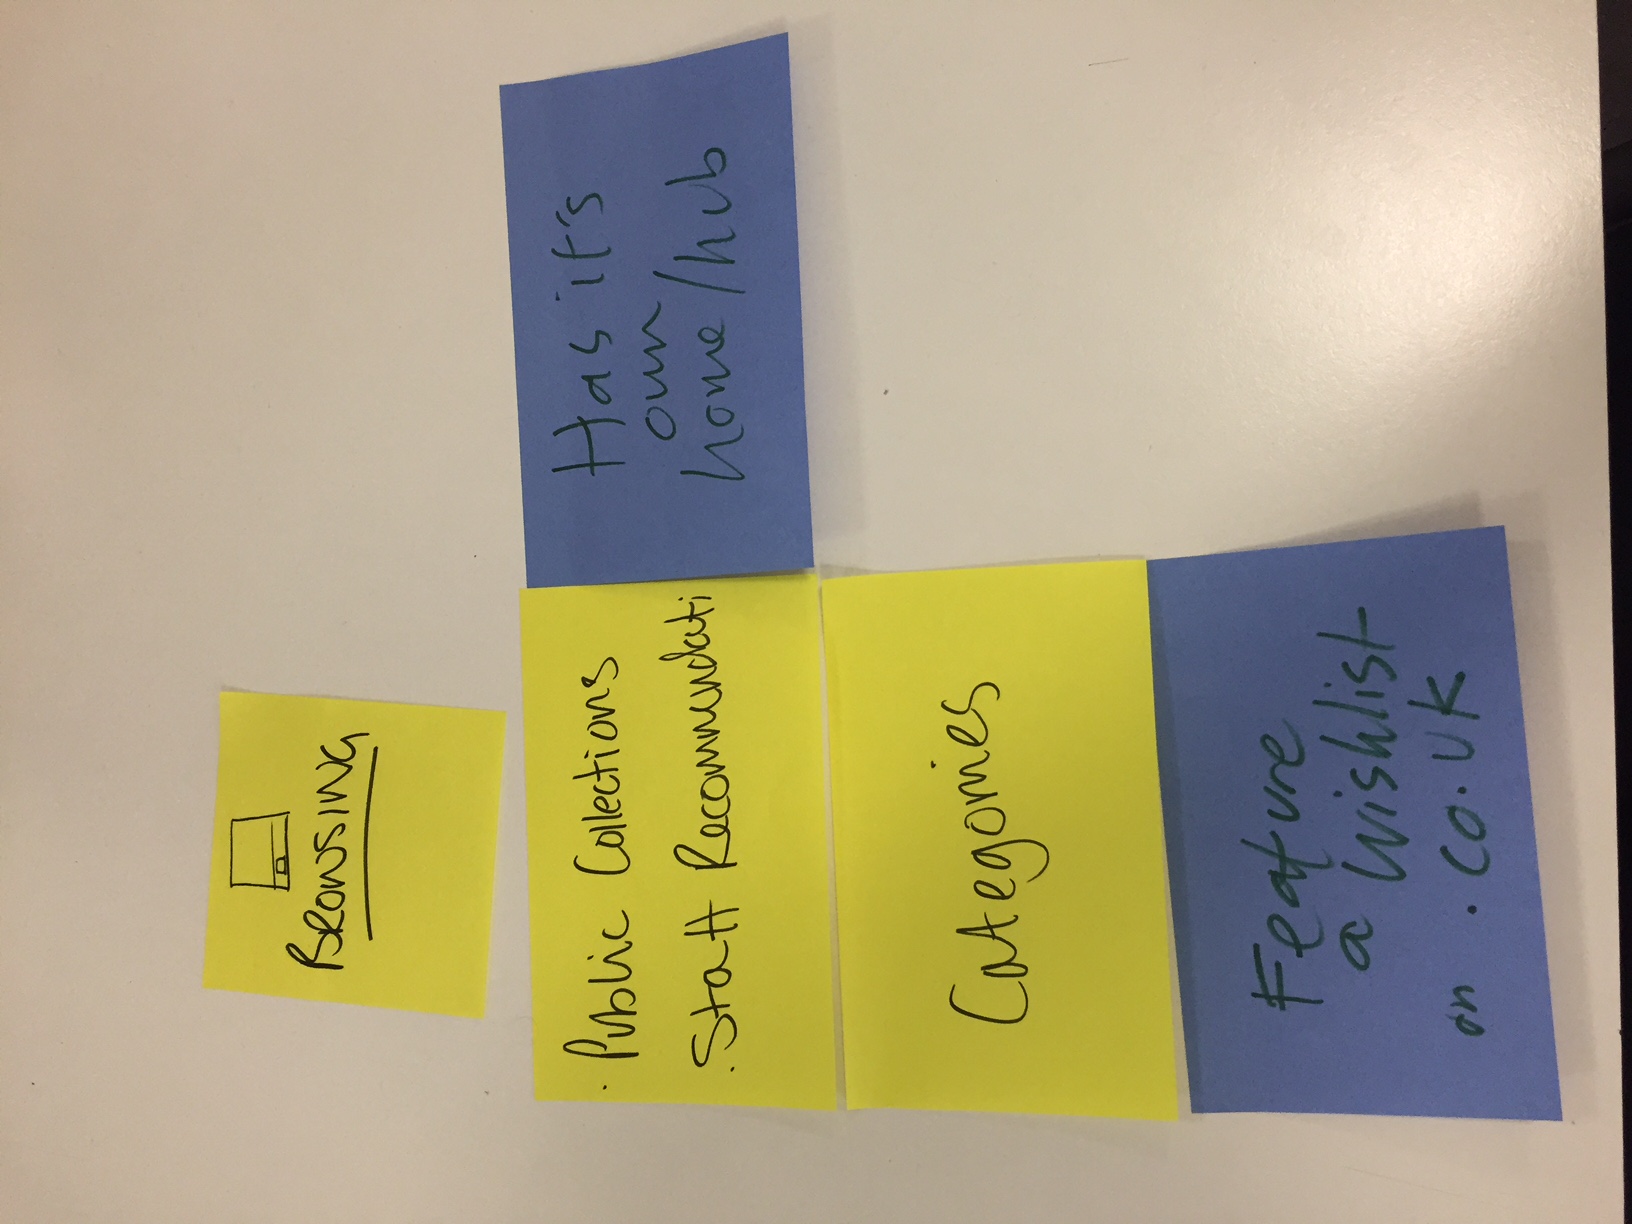 BROWSING
· Public Collections
. Staff Recommendati
Has it's
own
home/hub
Categories
Feature
a wishlist
on .co.uk